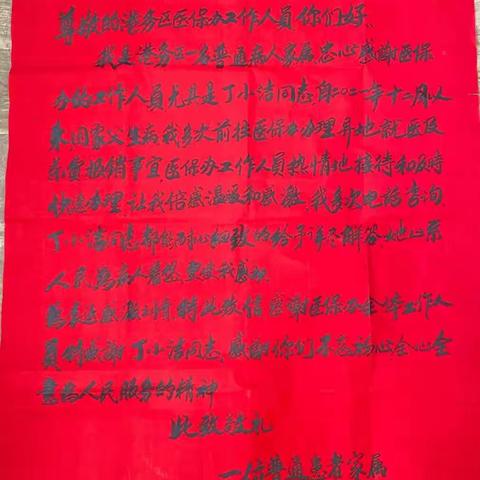 尊敬的港务区医保办工作人员你们好、
我是港务区一名普通病人家属忠心感谢医保
办的工作人员尤其是丁小洁同志自二〇二一年十二月以
来因家父生病我多次前往医保办办理异地就医及
药费报销事宜医保办工作人员热情地接待和及时
快速办理让我倍感温暖和感激、我多次电话咨询
丁小洁同志都能耐心细致的给予详尽解答她心系
人民为病人着想更使我感动
为表达感激之情特此致信感谢医保办全体工作人
员特感谢丁小洁同志、感谢你们不忘初心全心全
意为人民服务的精神
此致敬礼
一位普通患者家属